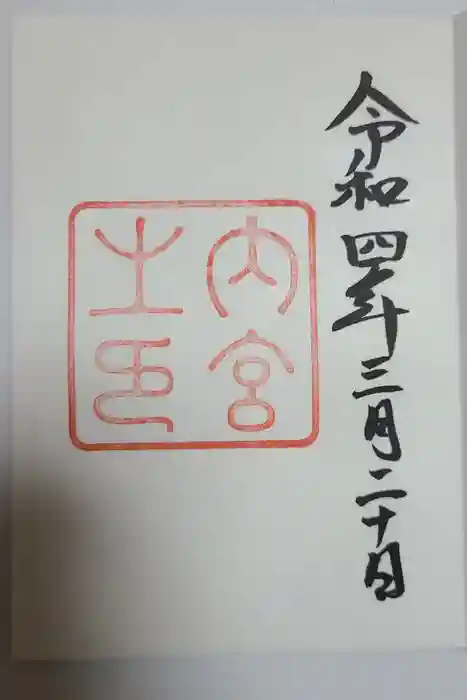 令和四年三月二十日
内宮
之印